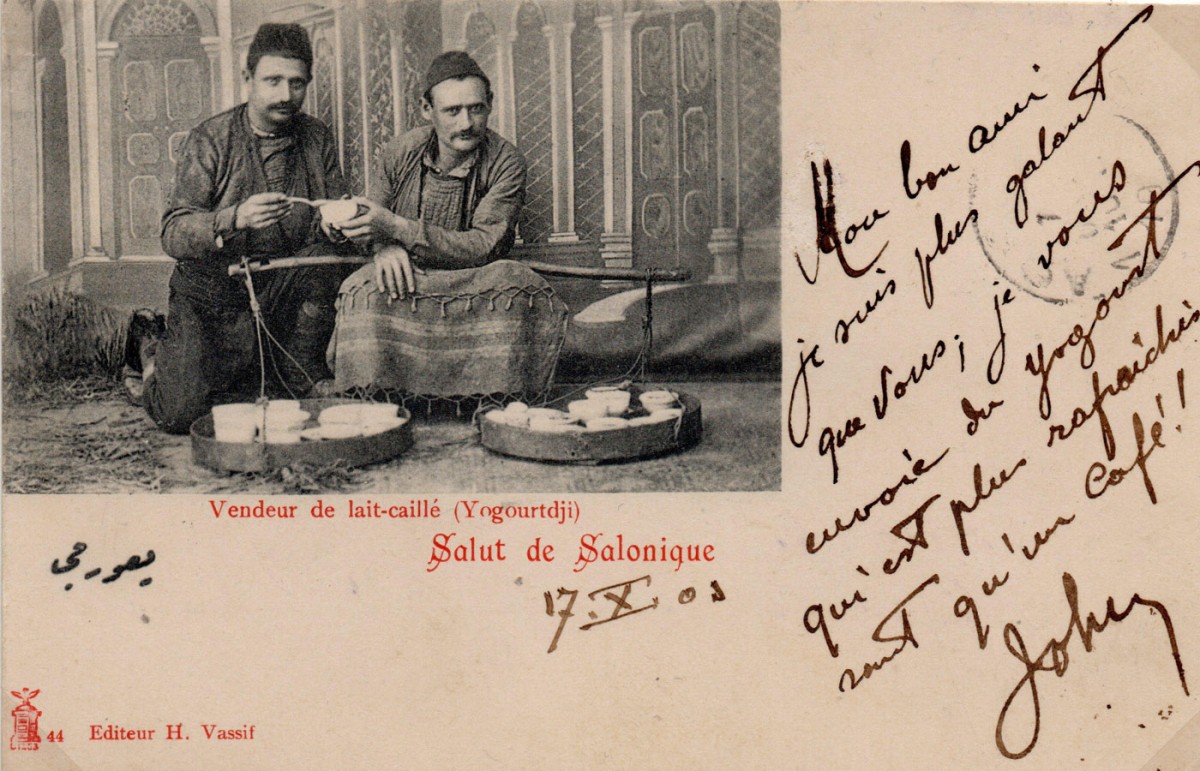 Vendeur de lait-caillé (Yogourtdji)
Salut de Salonique
17.X.
44 Editeur H. Vassif
Mon bon ami
je suis plus galant
que vous; je vous
envoie du yogourt
qui est plus rafraichis
sant qu'un café!
John